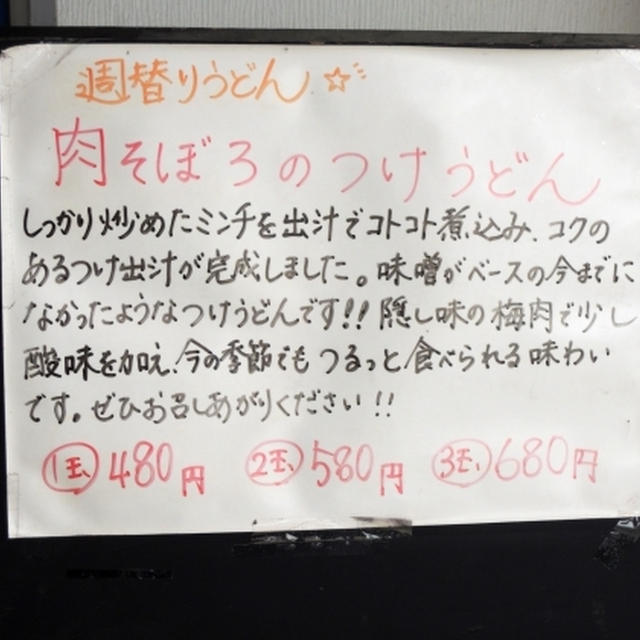 週替りうどん☆
肉そぼろのつけうどん
しっかり炒めたミンチを出汁でコトコト煮込み、コクの
あるつけ出汁が完成しました。味噌がベースの今までに
なかったようなつけうどんです!!隠し味の梅肉で少し
酸味を加え、今の季節でもつるっと食べられる味わい
です。ぜひお召しあがりください!!
1玉、480円 2玉、580円 3玉、680円